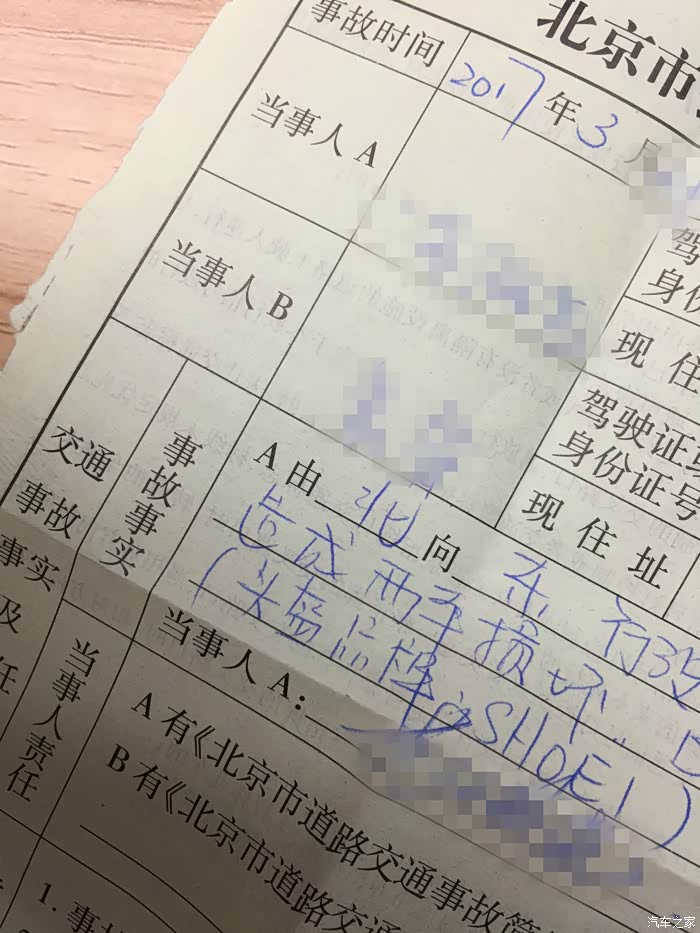 北京市
事故时间 2017年3月
当事人A
驾
身份
现住
当事人B
驾驶证
身份证号
现住址
交通
事故
事实
及
任
事故事实
A由北向东行驶
造成两车损坏
(头盔品牌为SHOEI)
当事人A:
当事人责任
A有《北京市道路交通事故简
B有《北京市道路交通
1.事
汽车之家